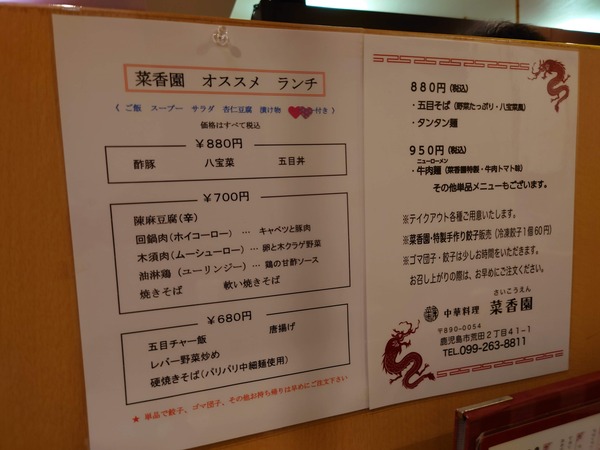 菜香園 オススメ ランチ
( ご飯 スープー サラダ 杏仁豆腐 漬け物 付き )
価格はすべて税込
￥880円
酢豚 八宝菜 五目丼
￥700円
陳麻豆腐(辛)
回鍋肉(ホイコーロー) … キャベツと豚肉
木須肉(ムーシューロー) … 卵と木クラゲ野菜
油淋鶏 (ユーリンジー) … 鶏の甘酢ソース
焼きそば 軟い焼きそば
￥680円
五目チャー飯 唐揚げ
レバー野菜炒め
硬焼きそば(パリパリ中細麺使用)
★ 単品で餃子、ゴマ団子、その他お持ち帰りは早めにご注文下さい
880円(税込)
・五目そば (野菜たっぷり・八宝菜風)
・タンタン麺
950円(税込)
ニューローメン
・牛肉麺 (菜香園特製・牛肉トマト味)
その他単品メニューもございます。
※テイクアウト各種ご用意いたします。
※菜香園・特製手作り餃子販売 (冷凍餃子1個60円)
※ゴマ団子・餃子は少しお時間をいただきます。
お召し上がりの際は、お早めにご注文ください。
さいこうえん
中華料理 菜香園
〒890-0054
鹿児島市荒田2丁目41-1
TEL.099-263-8811